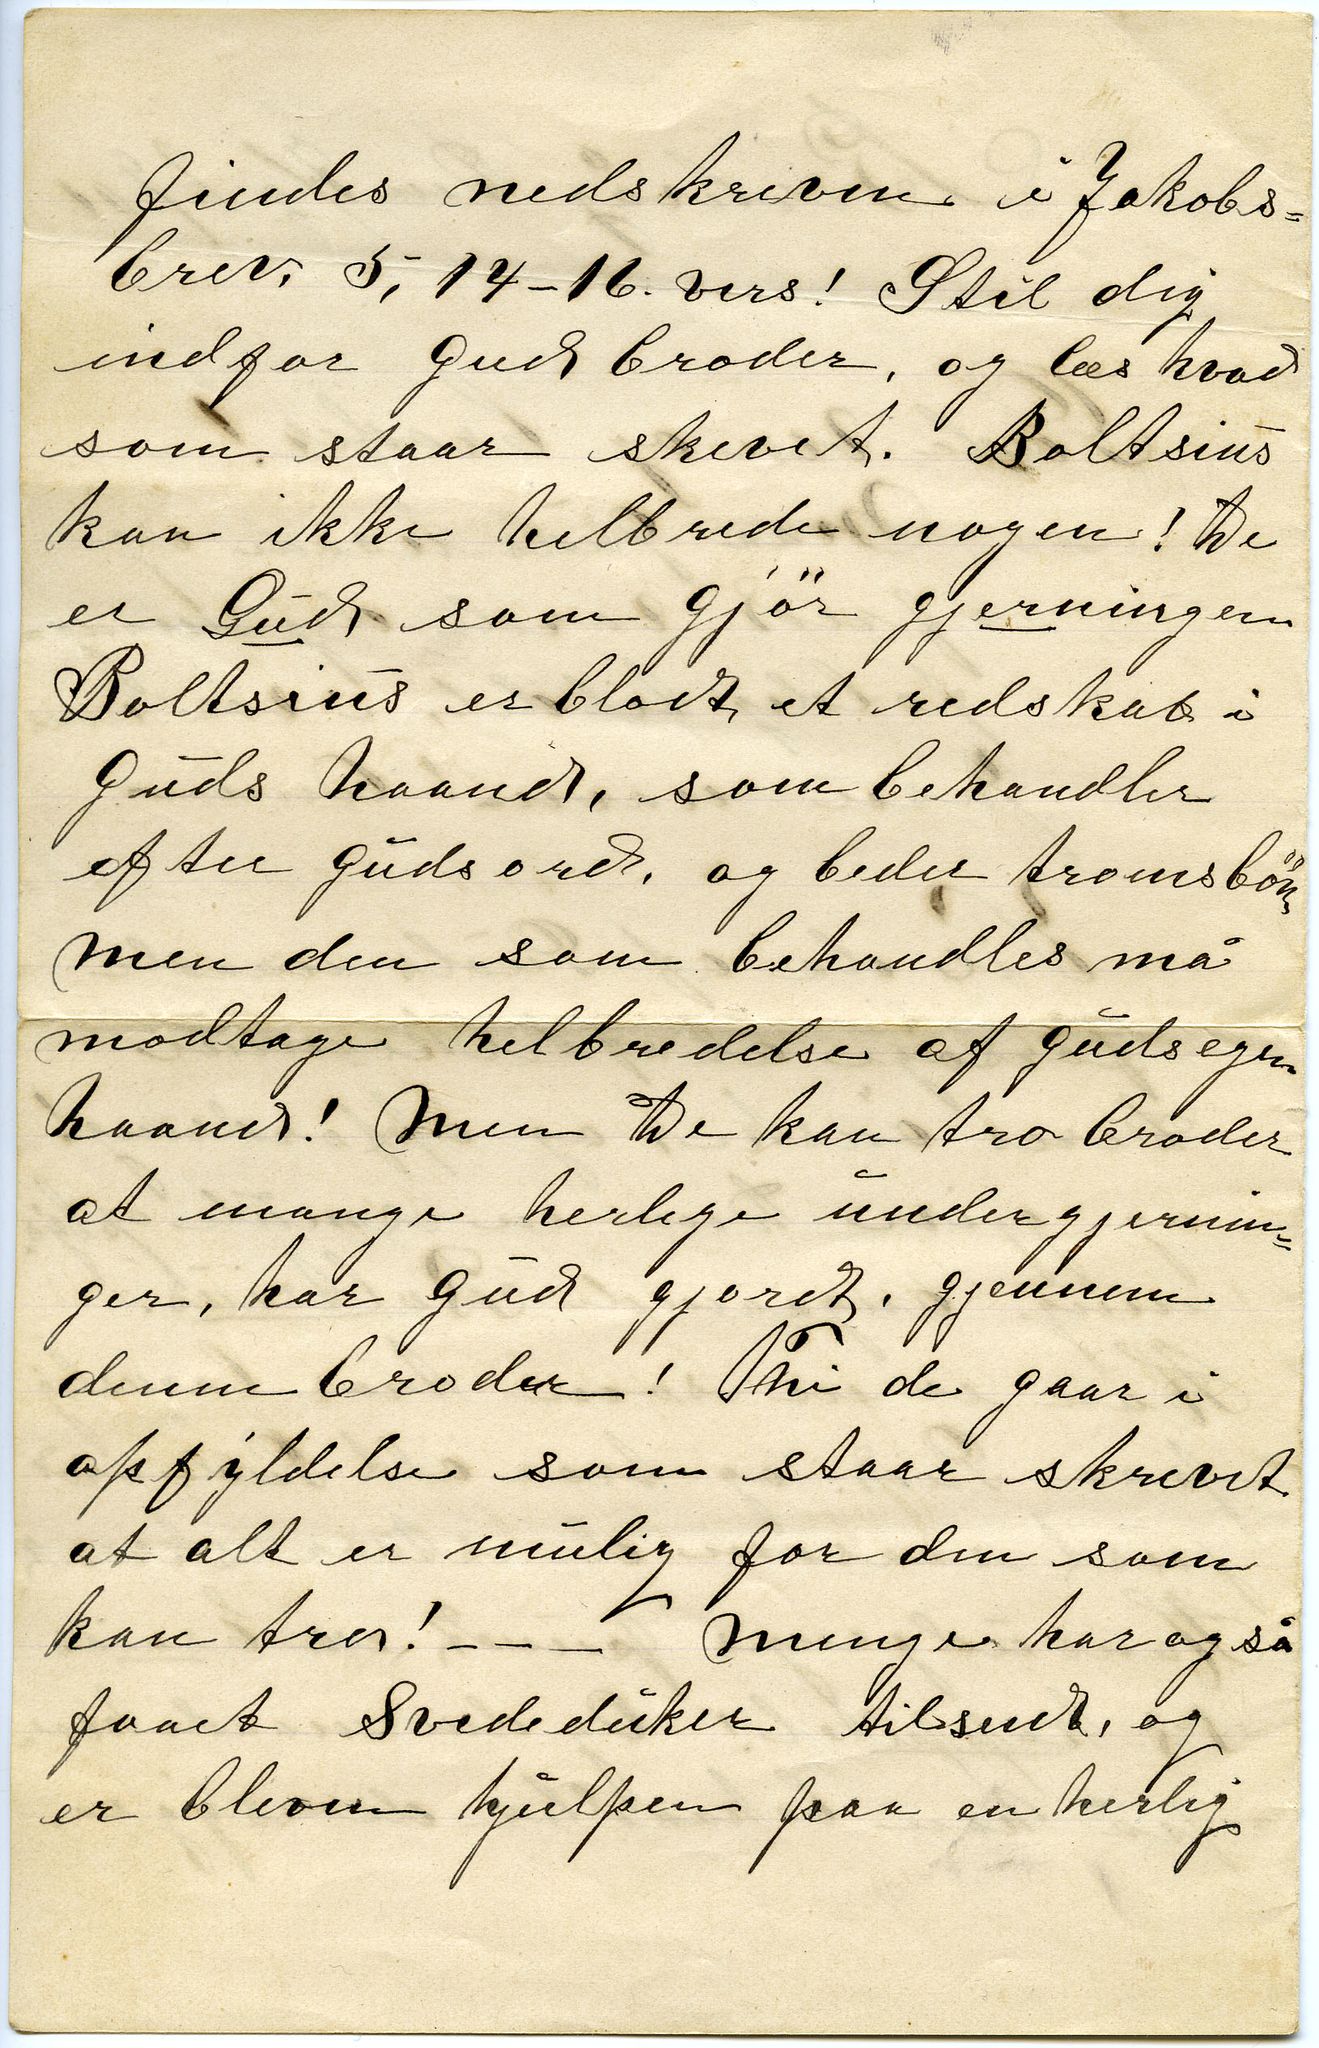 findes nedskreven i Jakobs=
brev, 5, 14-16. vers! Stil dig
indfor Gud broder, og læs hvad
som staar skevet. Boltsius
kan ikke helbrede nogen! De
er Gud som gjör gjerningen
Boltsius er blodt et redskab i
Guds haand, som behandler
efter Guds ord, og beder troens bön,
men den som behandles må
modtage helbredelse af Guds egen
haand! Men De kan tro broder
at mange herlige undergjernin=
ger, har Gud gjordt, gjennem
denne broder! Thi de gaar i
opfyldelse som staar skrevet
at alt er mulig for den som
kan tro! - - - Menge har også
faaet Svededuker tilsendt, og
er bleven hjulpen paa en herlig